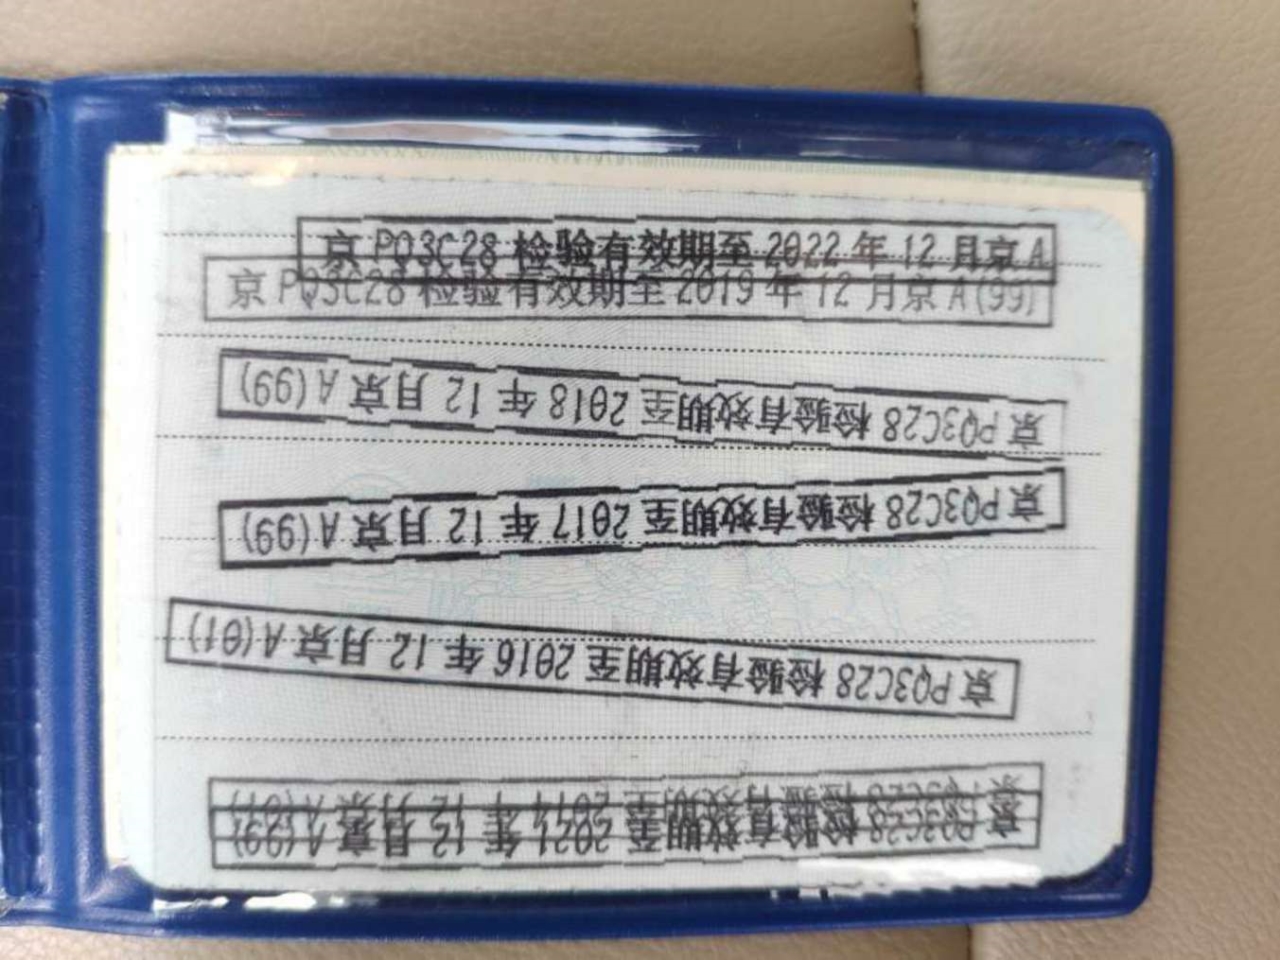 京 PQ3C28 检验有效期至 2022 年 12 月京 A
京 PQ3C28 检验有效期至 2019 年 12 月京 A(99)
京 PQ3C28 检验有效期至 2018 年 12 月京 A(99)
京 PQ3C28 检验有效期至 2017 年 12 月京 A(99)
京 PQ3C28 检验有效期至 2016 年 12 月京 A(01)
京 PQ3C28 检验有效期至 2014 年 12 月京 A(01)
京 PQ3C28 检验有效期至 2021 年 12 月京 A(99)